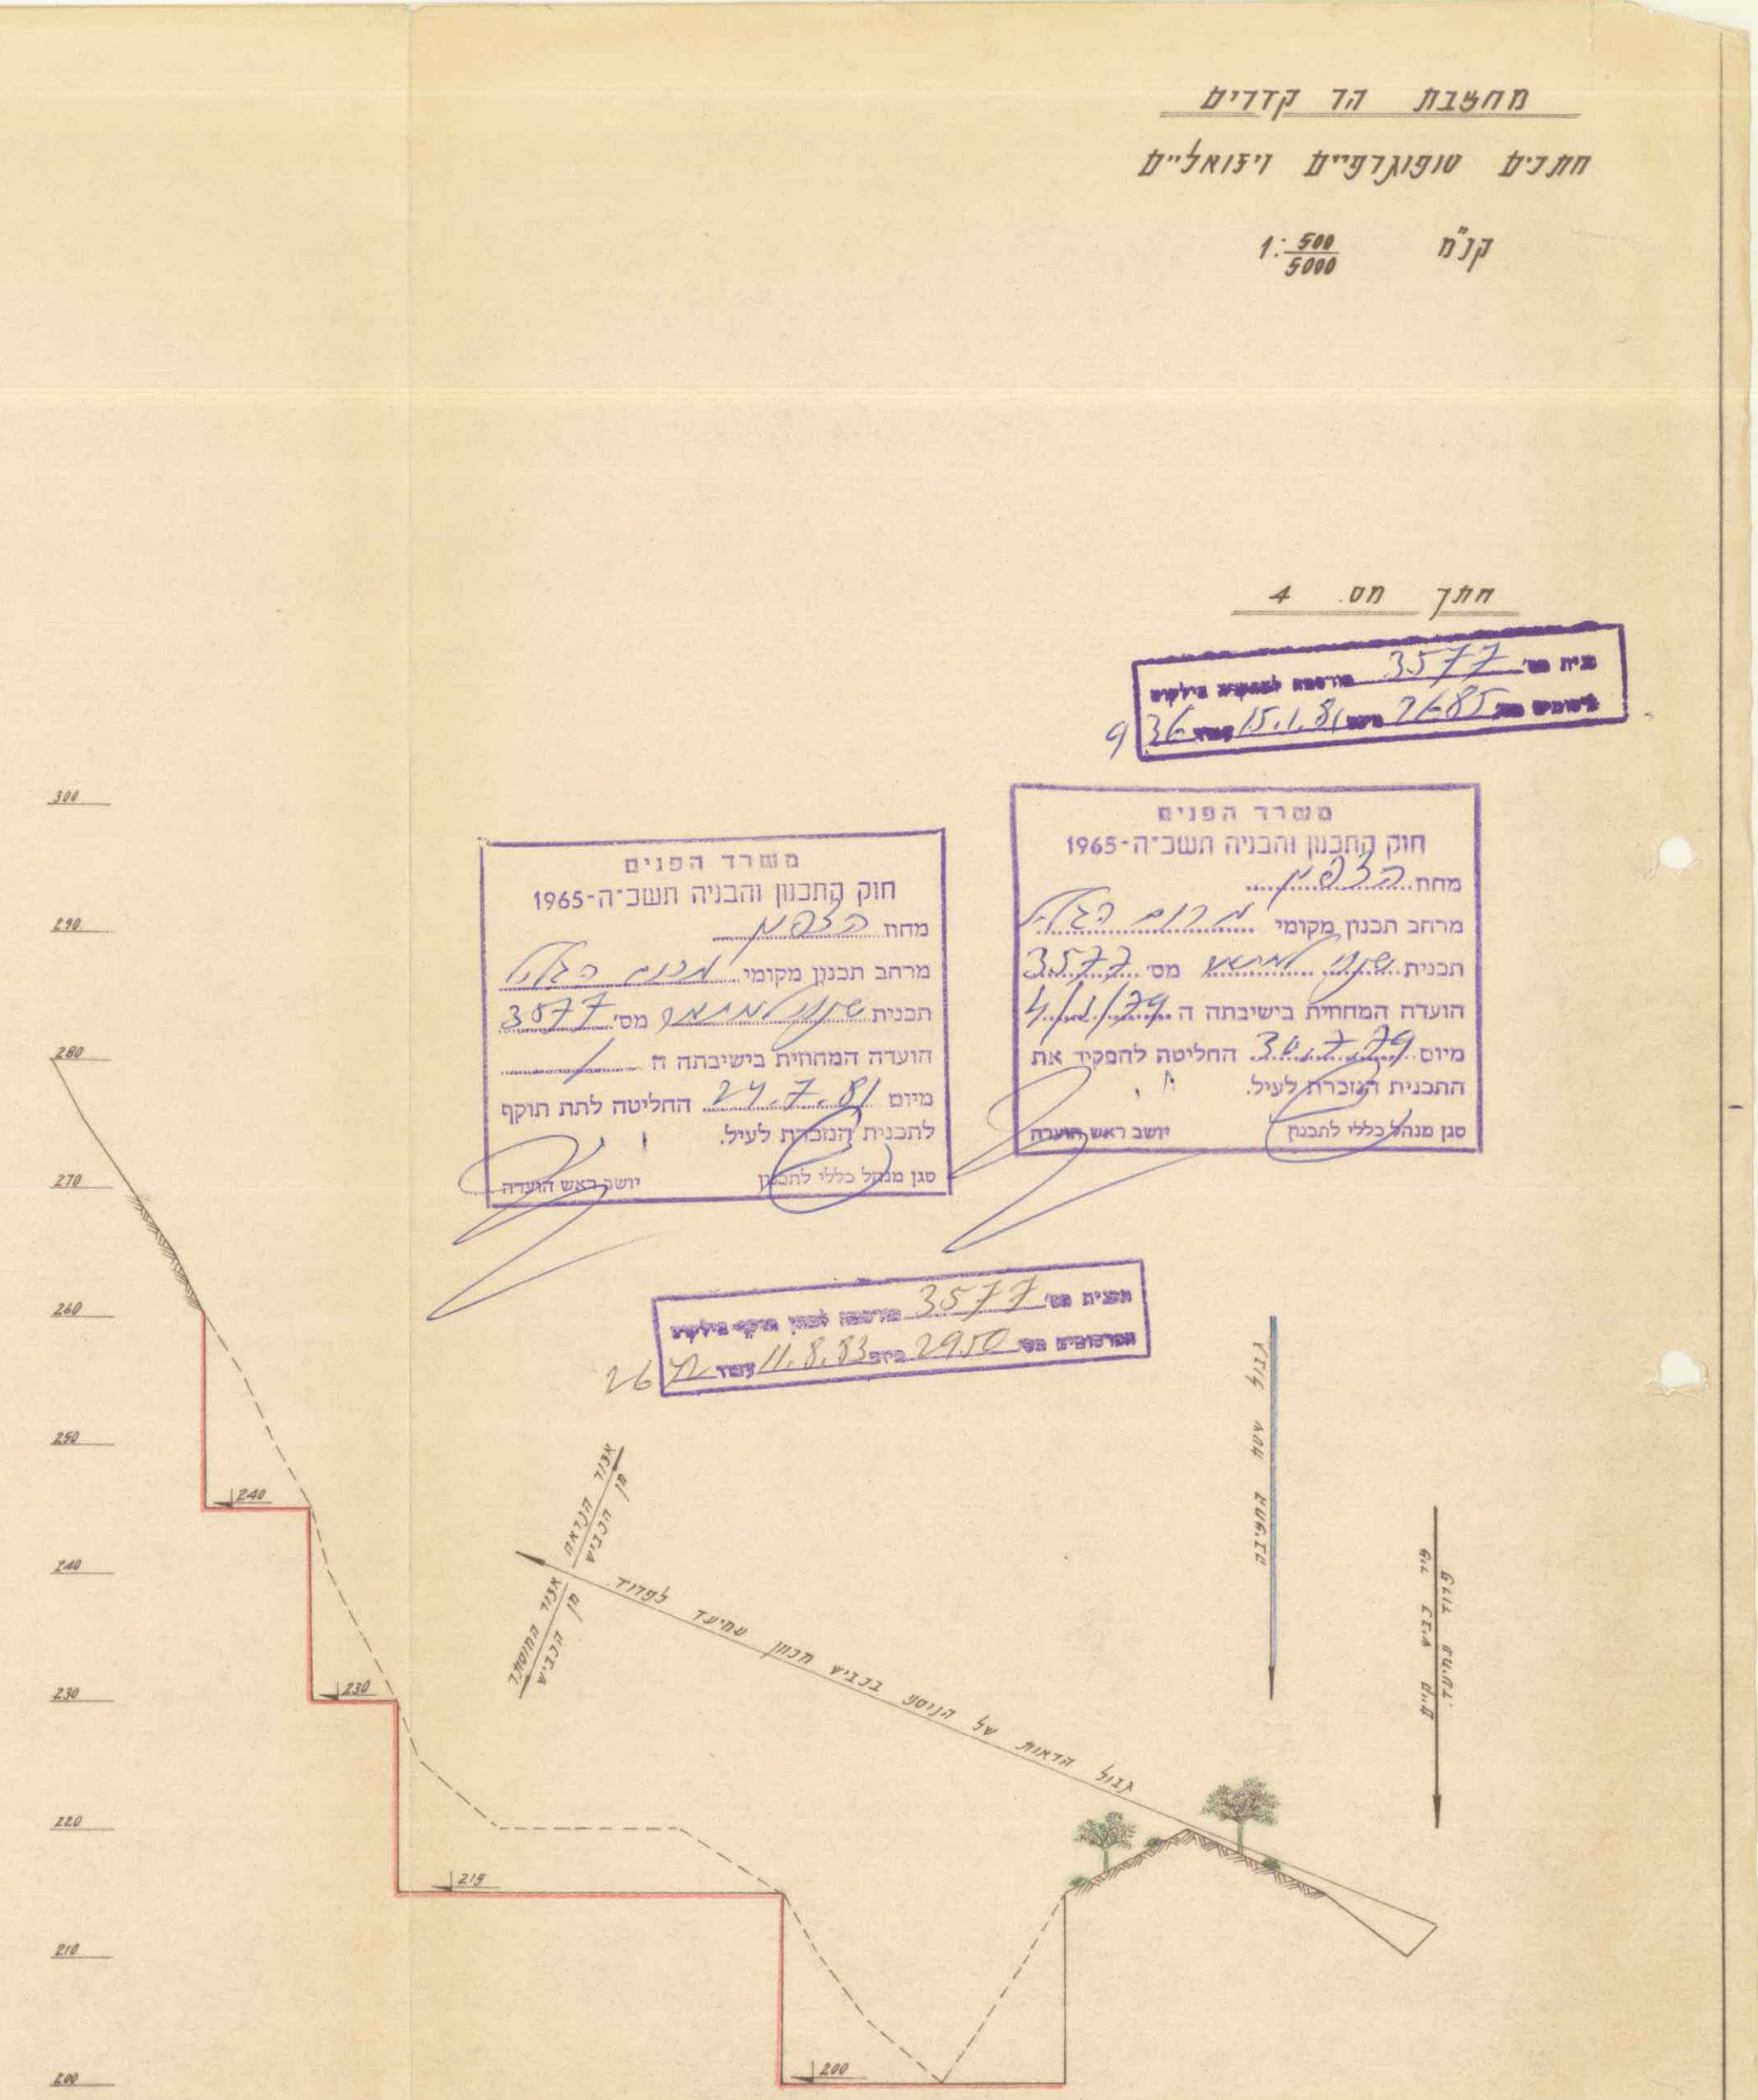 מחצבת הר קדרים
חתכים טופוגרפיים ויזואליים
קנ"מ 1:500/5000
חתך מס. 4
תכנית מס' 3577
2685 15.1.81 936
משרד הפנים
חוק התכנון והבניה תשכ"ה-1965
מחוז הצפון
מרחב תכנון מקומי מרום הגליל
תכנית שנוי למתאר מס' 3577
הועדה המחוזית בישיבתה ה 4/79
מיום 30.7.79 החליטה להפקיד את
התכנית הנזכרת לעיל.
סגן מנהל כללי לתכנון יושב ראש הועדה
משרד הפנים
חוק התכנון והבניה תשכ"ה-1965
מחוז הצפון
מרחב תכנון מקומי מרום הגליל
תכנית שנוי למתאר מס' 3577
הועדה המחוזית בישיבתה ה
מיום 24.7.81 החליטה לתת תוקף
לתכנית הנזכרת לעיל.
סגן מנהל כללי לתכנון יושב ראש הועדה
תכנית מס' 3577 פורסמה למתן תוקף בילקוט
הפרסומים מס' 2950 ביום 11.8.83 עמוד
300
290
280
270
260
250
240
230
220
210
200
240
230
215
200
אזור הנראה
מן הכביש
אזור המוסתר
מן הכביש
גבול הראות של הנוסע בכביש מכוון עמיעד לפרוד
גבול שטח המחצבה
ציר כביש קיים
פרוד עמיעד